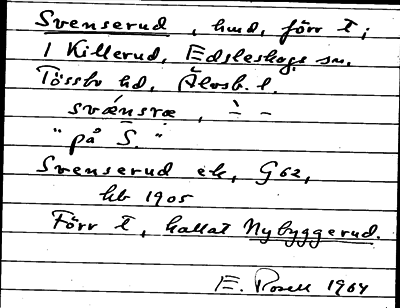 Svenserud, hmd, förr T;
1 Killerud, Edsleskogs sn,
Tössbo hd, Älvsb. l.
svǽnsræ, ` – –
" på S. "
Svenserud ek, G62,
hb 1905
Förr T, kallat Nybyggerud.
E. 1964